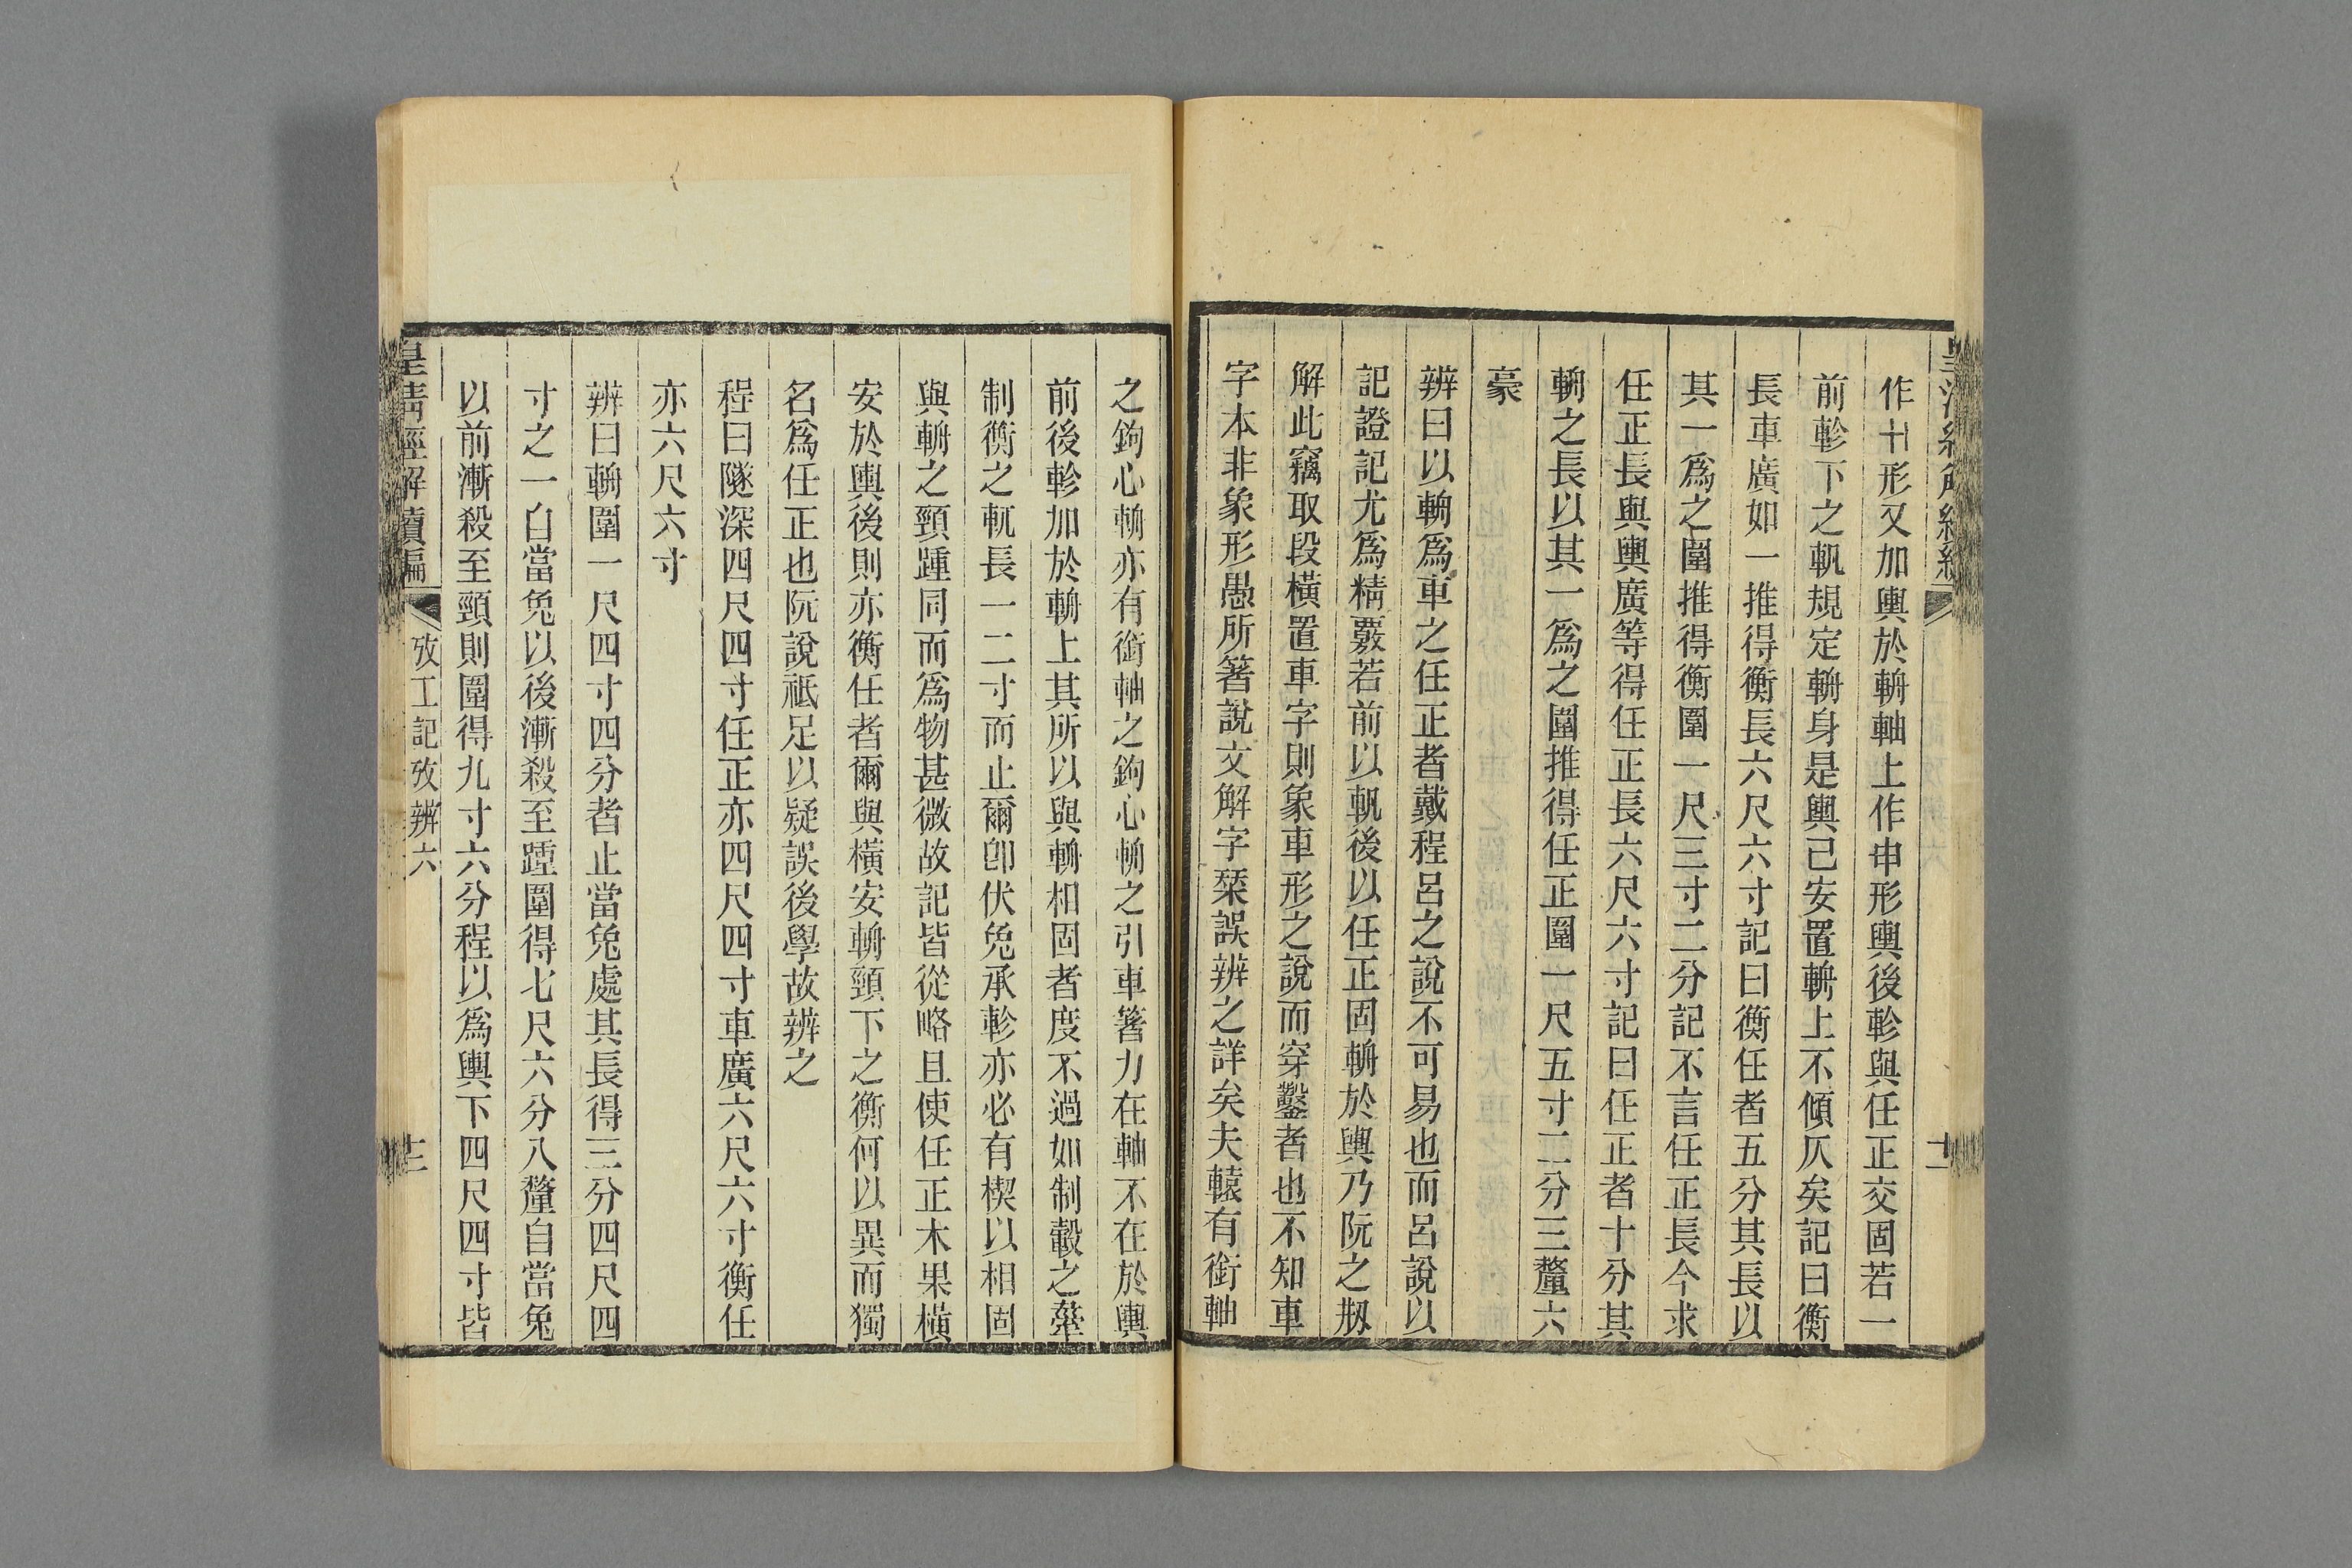 作卄形又加輿於輈軸上作申形輿後軫與任正交固若一
前軫下之軓規定輈身是輿已安置輈上不傾仄矣記曰衡
長車廣如一推得衡長六尺六寸記曰衡任者五分其長以
其一爲之圍推得衡圍一尺三寸二分記不言任正長今求
任正長與輿廣等得任正長六尺六寸記曰任正者十分其
輈之長以其一爲之圍推得任正圍一尺五寸二分三釐六
豪
辨曰以輈爲車之任正者戴程呂之說不可易也而呂說以
記證記尤爲精覈若前以軓後以任正固輈於輿乃阮之剏
解此竊取段橫置車字則象車形之說而穿鑿者也不知車
字本非象形愚所箸說文解字栞誤辨之詳矣夫轅有銜軸
之鉤心輈亦有銜軸之鉤心輈之引車箸力在軸不在於輿
前後軫加於輈上其所以與輈相固者度不過如制轂之舝
制衡之軏長一二寸而止爾卽伏兔承軫亦必有楔以相固
與輈之頸踵同而爲物甚微故記皆從略且使任正木果橫
安於輿後則亦衡任者爾與橫安輈頸下之衡何以異而獨
名爲任正也阮說祗足以疑誤後學故辨之
程曰隧深四尺四寸任正亦四尺四寸車廣六尺六寸衡任
亦六尺六寸
辨曰輈圍一尺四寸四分者止當兔處其長得三分四尺四
寸之一自當兔以後漸殺至踵圍得七尺六分八釐自當兔
以前漸殺至頸則圍得九寸六分程以爲輿下四尺四寸皆
皇清經解續編 攷工記攷辨六 十三